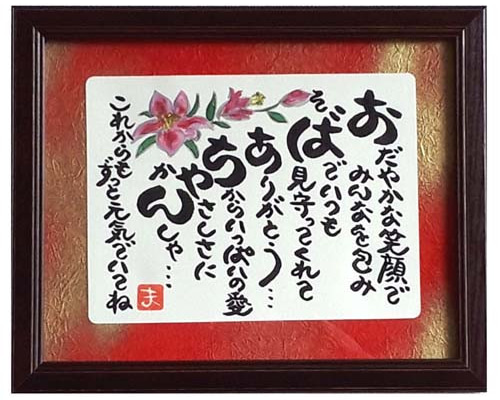 おだやかな笑顔で
みんなを包み
そばでいつも
見守ってくれて
ありがとう…
ちからいっぱいの愛
やさしさに
かんしゃ…
これからも
ずっと元気でいてね
ま